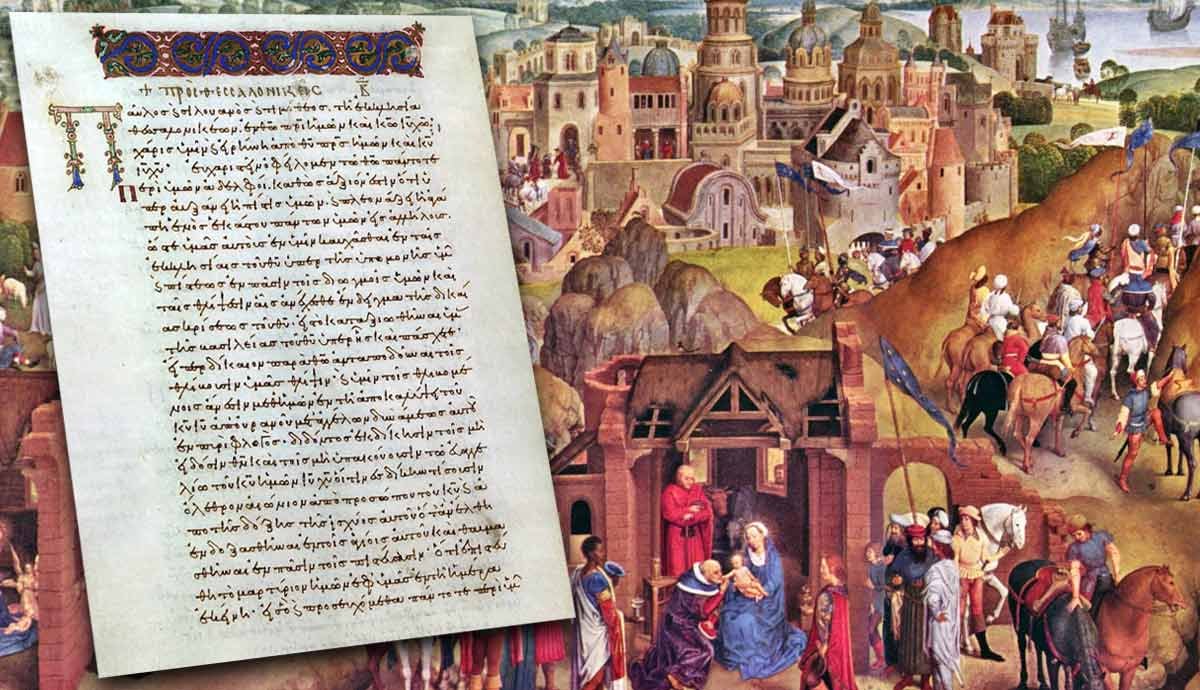 + ΠΡΟΣ ΘΕΣΣΑΛΟΝΙΚΕΙΣ Β
Παῦλος ϗ σιλουανὸς ϗ τιμόθεος, τῆ ἐκκλησία
θεσσαλονικέων ἐν θῶ πρὶ ἡμῶν καὶ κῶ ἰῦ χῶ·
χάρις ὑμῖν ϗ εἰρήνη ἀπὸ θῦ πρς ἡμῶν καὶ κῦ
ἰῦ χῦ· εὐχαριστεῖν ὀφείλομεν τῶ θῶ πάντοτε
περὶ ὑμῶν ἀδελφοὶ, καθὼς ἄξιόν ἐστιν ὅτι ὑ
περαυξάνει ἡ πίστις ὑμῶν, ϗ πλεονάζει ἡ ἀγά
πη ἑνὸς ἑκάστου πάντων ὑμῶν εἰς ἀλλήλους·
ὥστε ἡμᾶς αὐτοὺς ἐν ὑμῖν καυχᾶσθαι ἐν ταῖς
ἐκκλησίαις τοῦ θῦ ὑπὲρ τῆς ὑπομονῆς ὑμῶν
ϗ πίστεως ἐν πᾶσι τοῖς διωγμοῖς ὑμῶν καὶ
ταῖς θλίψεσιν αἷς ἀνέχεσθε ἔνδειγμα τῆς δικαί
ας κρίσεως τοῦ θῦ· εἰς τὸ καταξιωθῆναι ὑμᾶς
τῆς βασιλείας τοῦ θῦ ὑπὲρ ἧς καὶ πάσχετε·
εἴπερ δίκαιον παρὰ θῶ ἀνταποδοῦναι τοῖς
θλίβουσιν ὑμᾶς θλίψιν· ϗ ὑμῖν τοῖς θλιβομέ
νοις ἄνεσιν μεθ ἡμῶν ἐν τῆ ἀποκαλύψει τοῦ
κῦ ἰῦ ἀπ οὐρανοῦ μετ ἀγγέλων δυνάμεως αὐτοῦ
ἐν πυρὶ φλογός· διδόντος ἐκδίκησιν τοῖς μὴ
εἰδόσιν θν καὶ τοῖς μὴ ὑπακούουσιν τῶ εὐαγγε
λίω τοῦ κῦ ἡμῶν ἰῦ χῦ· οἵτινες δίκην τίσουσιν
ὄλεθρον αἰώνιον ἀπὸ προσώπου τοῦ κῦ ϗ ἀ
πὸ τῆς δόξης τῆς ἰσχύος αὐτοῦ ὅταν ἔλθη
ἐνδοξασθῆναι ἐν τοῖς ἁγίοις αὐτοῦ καὶ θαυμα
σθῆναι ἐν πᾶσιν τοῖς πιστεύσασιν· ὅτι ἐπιστεύ
θη τὸ μαρτύριον ἡμῶν ἐφ ὑμᾶς ἐν τῆ ἡμέρα
ἐκείνη· εἰς ὃ ϗ προσευχόμεθα πάντοτε περὶ ὑμῶν